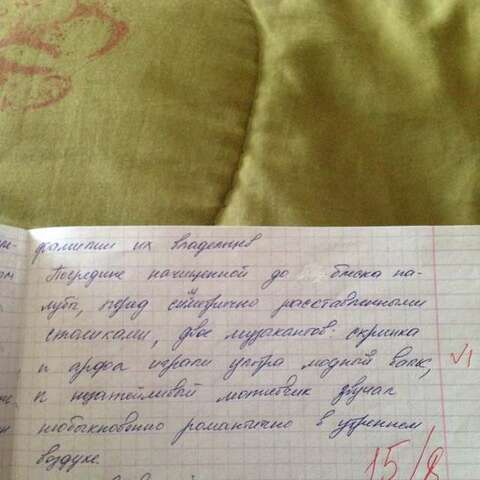 фамилии их владельцев
Посредине начищенной до блеска па-
лубы, перед симметрично расставленными
столиками, двое музыкантов: скрипка
и арфа играли ультра модный вальс,
и незатейливый мотивчик звучал
необыкновенно романтично в утреннем
воздухе.
√1
15/8